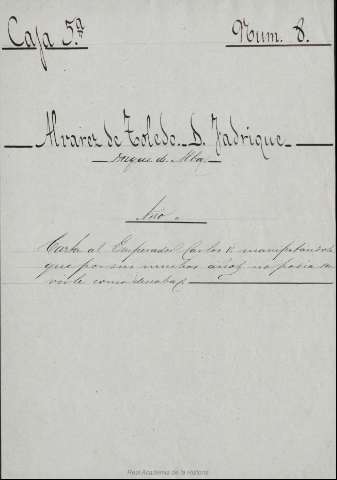 Caja 5.ª Num. 8.
Alvarez de Toledo D. Fadrique
Duque de Alba
Año
Carta al Emperador Carlos V. manifestandole
que por sus muchos años no podia ser
virle como deseaba
Real Academia de la Historia